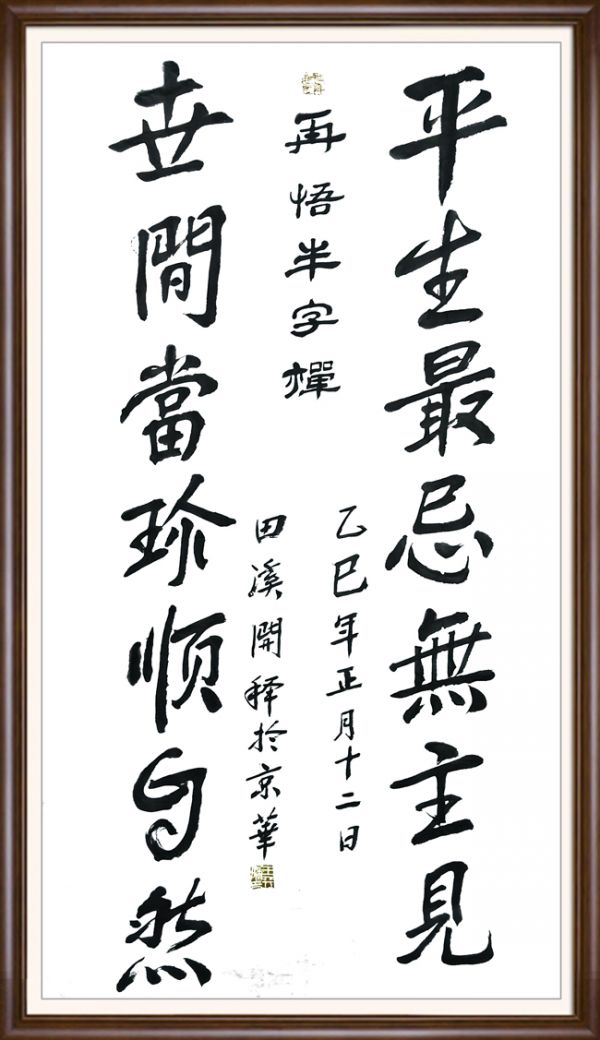 平生最忌無主見
再悟半字禪
乙巳年正月十二日
田溪開释於京華
世間當珍顺自然